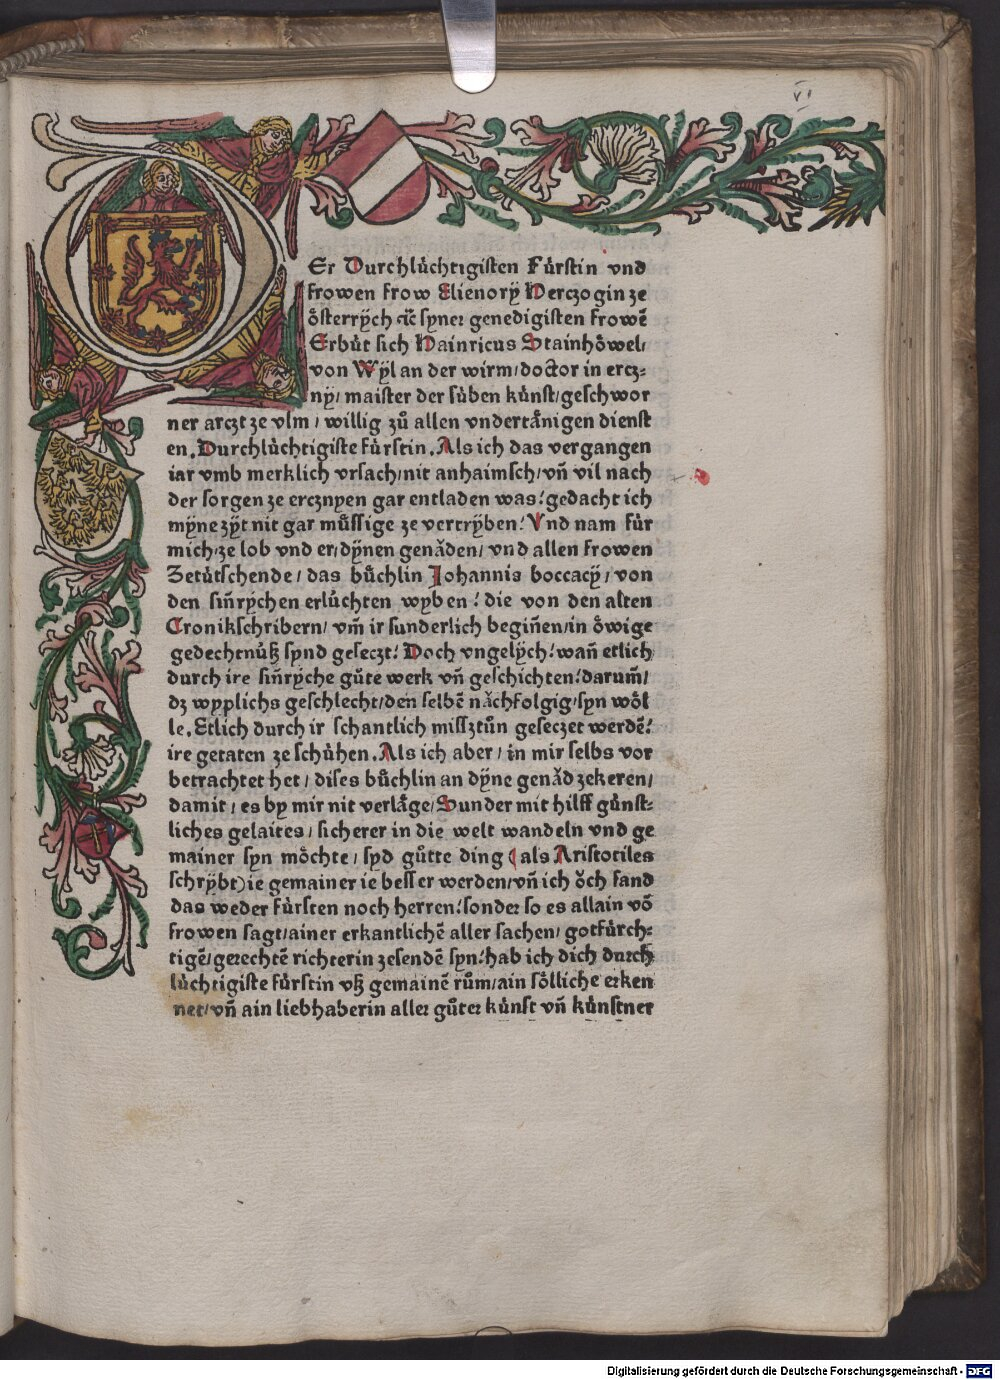 VI
Er Durchlüchtigisten Fürstin vnd
frowen frow Elienorÿ Herczogin ze
österrÿch ꝛc̄ sÿner genedigisten frowē
Erbüt sich Hainricus Stainhöwel/
von Wÿl an der wirm/doctor in ercz-
nÿ/ maister der süben künst/geschwor
ner arczt ze vlm / willig zů allen vndertånigen dienst
en. Durchlüchtigiste fürstin. Als ich das vergangen
iar vmb merklich vrsach/nit anhaimsch/vn̄ vil nach
der sorgen ze ercznyen gar entladen was! gedacht ich
mÿne zÿt nit gar müssige ze vertrÿben! Vnd nam für
mich/ze lob vnd er/dÿnen genåden/ vnd allen frowen
Zetütschende / das büchlin Johannis boccacÿ/ von
den sin̄rÿchen erlüchten wyben! die von den alten
Cronikschribern/ vm̄ ir sunderlich begin̄en/in öwige
gedechtnüß synd geseczt! Doch vngelÿch! wan̄ etlich
durch ire sin̄rÿche gůte werk vn̄ geschichten! darum̄/
dz wyplichs geschlecht/den selbē nåchfolgig/syn wöl
le. Etlich durch ir schantlich missztůn geseczet werdē!
ire getaten ze schühen. Als ich aber/ in mir selbs vor
betrachtet het/ dises büchlin an dÿne genåd zekeren/
damit/ es by mir nit verlåge/ Sunder mit hilff günst-
liches gelaites/ sicherer in die welt wandeln vnd ge
mainer syn möchte/ syd gůtte ding (als Aristotiles
schrÿbt) ie gemainer ie besser werden/vn̄ ich öch fand
das weder fürsten noch herren! sonder so es allain vō
frowen sagt/ainer erkantlichē aller sachen/ gotfürch-
tigē/gerechtē richterin zesendē syn! hab ich dich durch
lüchtigiste fürstin vß gemainē rům/ain sölliche erken
net/vn̄ ain liebhaberin aller gůter künst vn̄ künstner
Digitalisierung gefördert durch die Deutsche Forschungsgemeinschaft - DFG